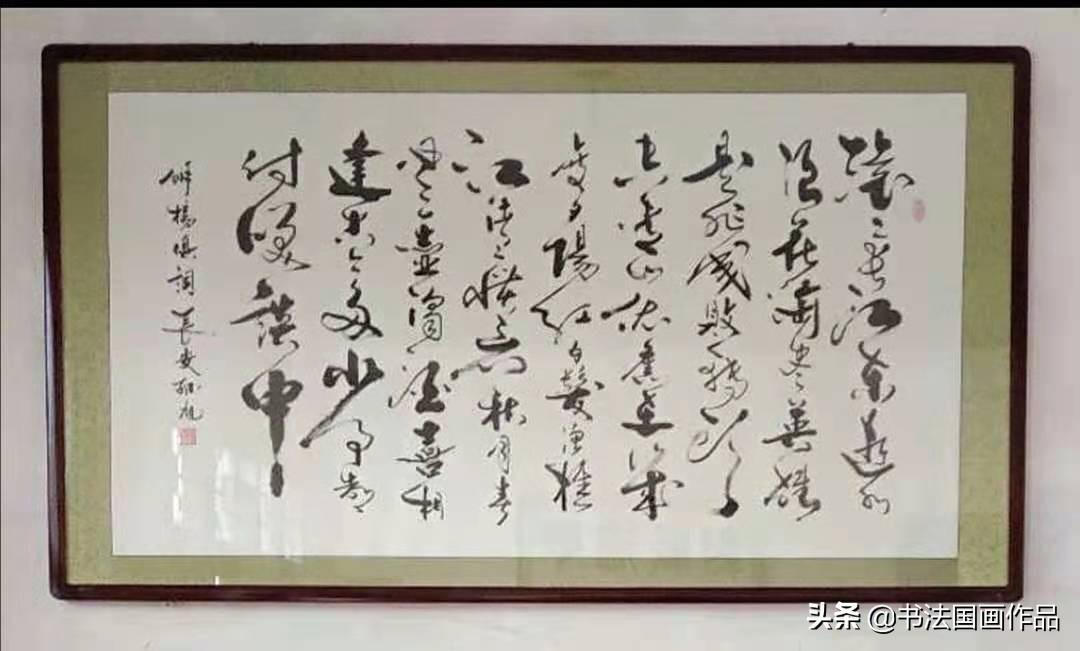 滚滚长江东逝水
浪花淘尽英雄
是非成败转头
空青山依旧在几
度夕陽红白髮渔樵
江渚上惯看秋月春
风一壶浊酒喜相
逢古今多少事都
付笑谈中
楊慎詞長安
头条 @书法国画作品